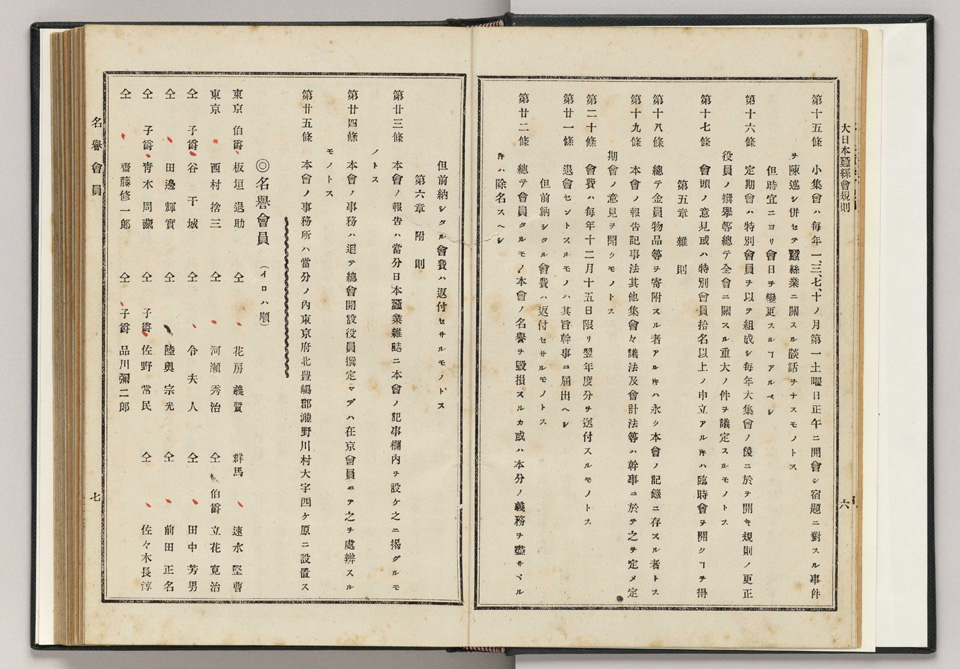 大日本蠶絲會規則
第十五條　小集會ハ毎年一三、七、十ノ月第一土曜日正午ニ開會シ宿題ニ對スル事件
ヲ陳述シ併セテ蠶絲業ニ關スル談話ヲナスモノトス
但時宜ニヨリ會日ヲ變更スルヿアルベシ
第十六條　定期會ハ特別會員ヲ以テ組成シ毎年大集會ノ後ニ於テ開キ規則ノ更正
役員ノ撰擧等總テ全會ニ關スル重大ノ件ヲ議定スルモノトス
第十七條　會頭ノ意見或ハ特別會員拾名以上ノ申立アルキハ臨時會ヲ開クヿヲ得
第五章　雜則
第十八條　總テ金員物品等ヲ寄附スル者アルキハ永ク本會ノ記錄ニ存スル者トス
第十九條　本會ノ報告記事法其他集會々議法及會計法等ハ幹事ニ於テ之ヲ定メ定
期會ノ意見ヲ聞クモノトス
第二十條　會費ハ毎年十二月十五日限リ翌年度分ヲ送付スルモノトス
第廿一條　退會セントスルモノハ其旨幹事ニ届出ヘシ
但前納シタル會費ハ返付セサルモノトス
第廿二條　總テ會員タルモノ本會ノ名譽ヲ毀損スルカ或ハ本分ノ義務ヲ盡サヾル
キハ除名スヘシ
六
但前納シタル會費ハ返付セサルモノトス
第六章　附則
第廿三條　本會ノ報告ハ當分日本蠶業雜誌ニ本會ノ記事欄内ヲ設ケ之ニ揚グルモ
ノトス
第廿四條　本會ノ事務ハ追テ總會開設役員撰定マデハ在京會員ニテ之ヲ處辨スル
モノトス
第廿五條　本會ノ事務所ハ當分ノ内東京府北豐嶋郡瀧野川村大字西ケ原ニ設置ス
◎名譽會員（イロハ順）
東京　伯爵　板垣退助　仝　花房義質　群馬　速水堅曹
東京　西村捨三　仝　河瀬秀治　仝　伯爵　立花寛治
仝　子爵　谷干城　仝　令夫人　仝　田中芳男
仝　田邊輝實　仝　陸奥宗光　仝　前田正名
仝　子爵　青木周藏　仝　子爵　佐野常民　仝　佐々木長淳
仝　齋藤修一郎　仝　子爵　品川彌二郎
名譽會員
七